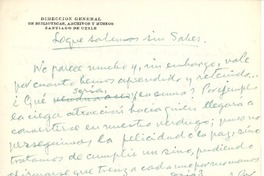 DIRECCION GENERAL
DE BIBLIOTECAS, ARCHIVOS Y MUSEOS
SANTIAGO DE CHILE
Lo que sabemos sin saber.
No parece mucho y, sin embargo, vale
por cuanto hemos aprendido y retenido...
sería,
¿Qué en suma? Por ejemplo
la ciega atracción hacia quien llegará a
convertirse en nuestro verdugo; pues no
perseguimos la felicidad o la paz, sino
tratamos de cumplir un sino, pudiendo